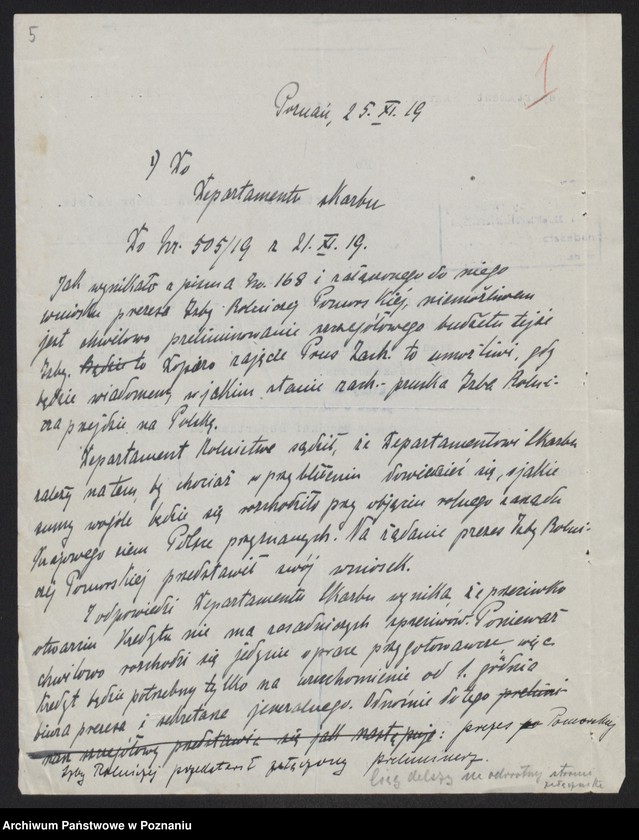 5
1
Poznań, 25. XI. 19
1) Do
Departamentu Skarbu
Do Nr. 505/19 z 21. XI. 19.
Jak wynikało z pisma 168 i załączonego do niego
wniosku prezesa Izby Rolniczej Pomorskiej, niemożliwem
jest chwilowo preliminowanie szczegółowego budżetu tejże
Izby. Będzie to Dopiero zajęcie Prus Zach. to umożliwi, gdy
będzie wiadomem, w jakim stanie zach.-pruska Izba Rolni-
cza przejdzie na Polskę.
Departament Rolnictwa sądził, że Departamentowi Skarbu
zależy na tem, by chociaż w przybliżeniu dowiedzieć się, o jakie
sumy wogóle będzie się rozchodziło przy objęciu rolnego zarządu
Krajowego ziem Polsce przyznanych. Na żądanie prezes Izby Rolni-
czej Pomorskiej przedstawił swój wniosek.
Z odpowiedzi Departamentu Skarbu wynika że przeciwko
otwarciu kredytu nie ma zasadniczych sprzeciwów. Ponieważ
chwilowo rozchodzi się jedynie o prace przygotowawcze, więc
kredyt będzie potrzebny tylko na uruchomienie od 1. grudnia
biura prezesa i sekretarza jeneralnego. Odnośnie do tego prelimi
narz szczegółowy przedstawia się jak następuje: prezes Pomorskiej
Izby Rolniczej przedstawił załączony preliminarz.
Ciąg dalszy na odwrotnej stronie
Archiwum Państwowe w Poznaniu